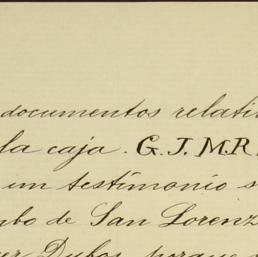 documentos relati
la caja. G. J. M. R.
un testimonio s
bo de San Lorenz
Dubos, porque